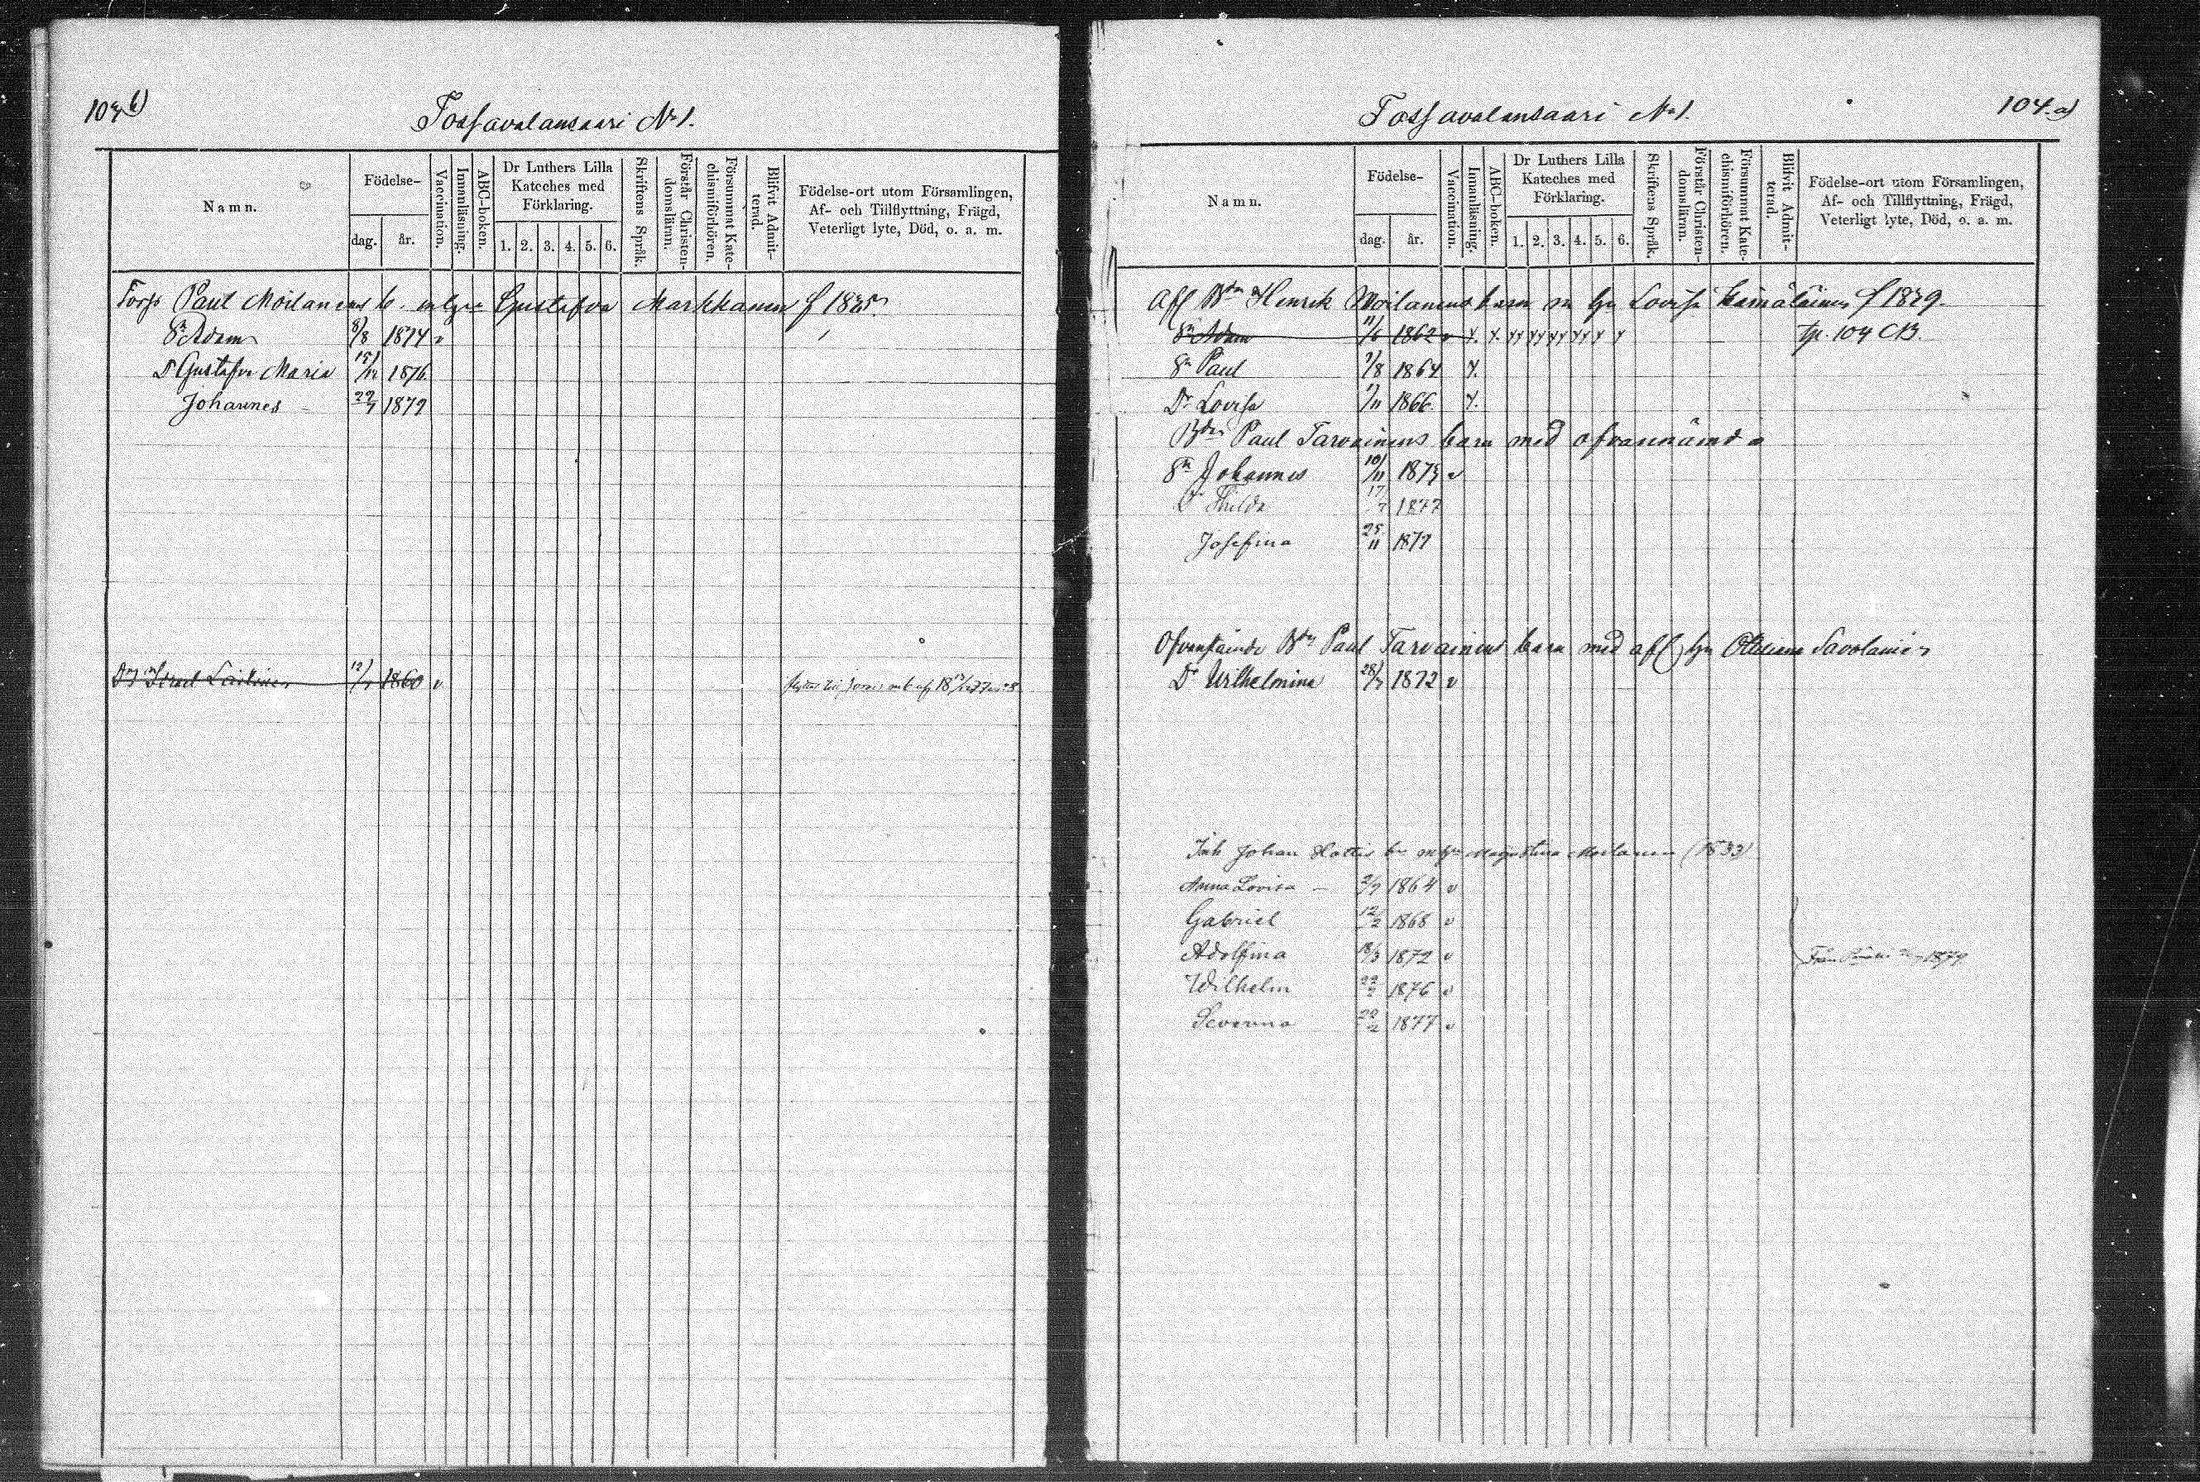 103 b)
Tossavalansaari No 1.
Namn.
Födelse-
dag.
år.
Vaccination.
Innanläsning.
ABC-boken.
Dr Luthers Lilla
Kateches med
Förklaring.
1. 2. 3. 4. 5. 6.
Skriftens Språk.
Förstår Christen-
domsläran.
Försummat Kate-
chismiförhören.
Blifvit Admit-
terad.
Födelse-ort utom Församlingen,
Af- och Tillflyttning, Frägd,
Veterligt lyte, Död, o. a. m.
Torp Paul Moilanens b. m hu Gustafva Markkanen f 1835.
Sn Adam 8/8 1874 v
Dr Gustafva Maria 15/12 1876.
Johannes 22/7 1879
Israel Laitinen 12/7 1860 v
104. a)
Tossavalansaari No 1.
Namn.
Födelse-
dag.
år.
Vaccination.
Innanläsning.
ABC-boken.
Dr Luthers Lilla
Kateches med
Förklaring.
1. 2. 3. 4. 5. 6.
Skriftens Språk.
Förstår Christen-
domsläran.
Försummat Kate-
chismiförhören.
Blifvit Admit-
terad.
Födelse-ort utom Församlingen,
Af- och Tillflyttning, Frägd,
Veterligt lyte, Död, o. a. m.
Afl Bdn Henrik Moilanens barn m hu Lovisa Hämäläinen f 1829.
Sn Adam 11/6 1862 v tp. 104 CB.
Sn Paul 7/8 1864
Dr Lovisa 1/11 1866
Bdn Paul Tarvainens barn med ofvannämnda
Sn Johannes 10/11 1873 v
Dr Thilda 17/7 1877
Josefina 25/11 1879
Ofvanstående Bdn Paul Tarvainens barn med afl hu Ottiliana Savolainen
Dr Wilhelmina 28/7 1872 v
Inh Johan Hottis bn m hu Magd Stina Moilanen (1833)
Anna Lovisa 2/7 1864 v
Gabriel 12/2 1868 v
Adolfina 18/3 1872 v Från 1879
Wilhelm 1876 v
Severina 1877 v